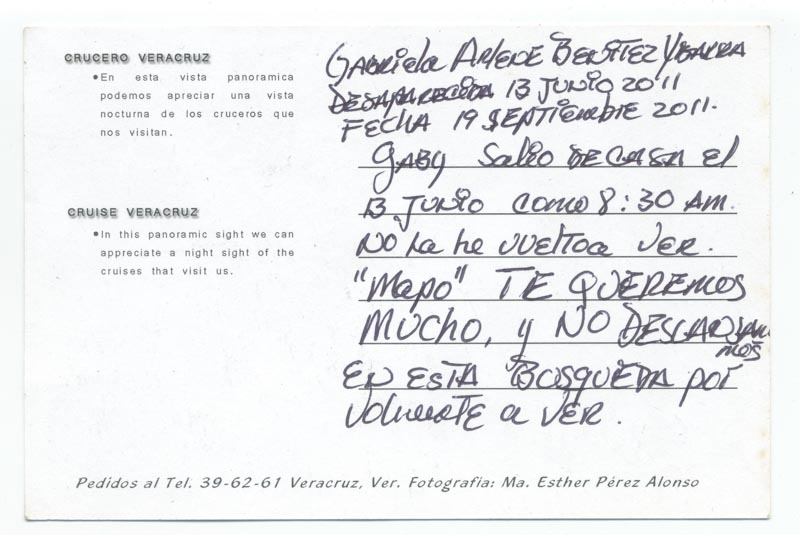 CRUCERO VERACRUZ
•En esta vista panoramica
podemos apreciar una vista
nocturna de los cruceros que
nos visitan.
CRUISE VERACRUZ
•In this panoramic sight we can
appreciate a night sight of the
cruises that visit us.
Gabriela Arlene Benitez Ybarra
DESAPARECIDA 13 JUNIO 2011
FECHA 19 SEPTIEMBRE 2011.
GABY Salio DE CASA el
13 JUNIO como 8:30 AM.
NO la he vuelto a VER.
"Mapo" TE QUEREMOS
MUCHO, y NO DESCANSAR
mos
EN ESTA BUSQUEDA por
volverte a VER.
Pedidos al Tel. 39-62-61 Veracruz, Ver. Fotografia: Ma. Esther Pérez Alonso